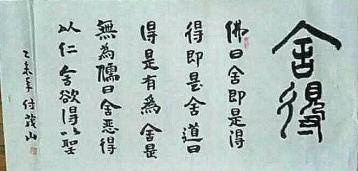 舍得
佛曰舍即是得
得即是舍道曰
得是有為舍是
無為儒曰舍惡得
以仁舍欲得以聖
乙未年付茂山